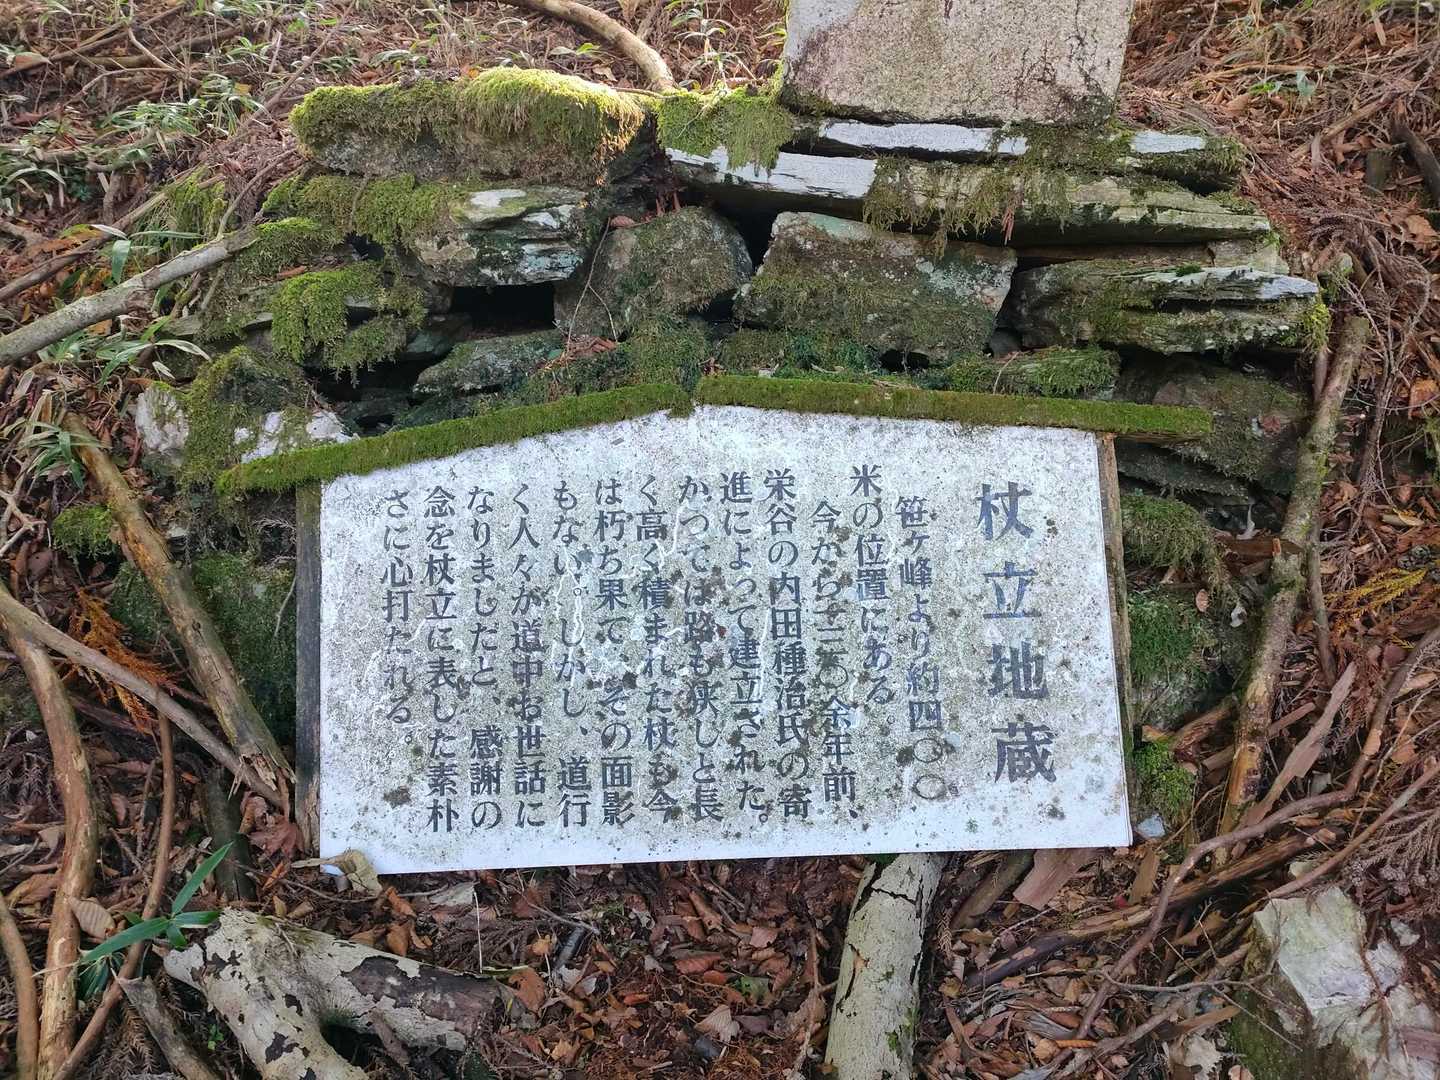 杖立地蔵
笹ヶ峰より約四〇〇
米の位置にある。
今から二二〇余年前、
栄谷の内田種治氏の寄
進によって建立された。
かつては路も狭しと長
く高く積まれた杖も今
は朽ち果て、その面影
もない。しかし、道行
く人々が道中お世話に
なりましたと、感謝の
念を杖立に表した素朴
さに心打たれる。